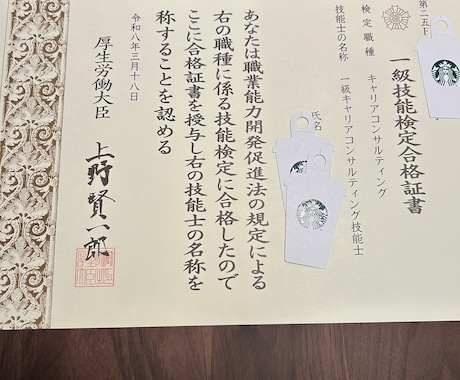 第二五F
一級技能検定合格証書
検定職種　キャリアコンサルティング
技能士の名称　一級キャリアコンサルティング技能士
氏名
あなたは職業能力開発促進法の規定による
右の職種に係る技能検定に合格したので
ここに合格証書を授与し右の技能士の名称を
称することを認める
令和八年三月十八日
厚生労働大臣　上野賢一郎